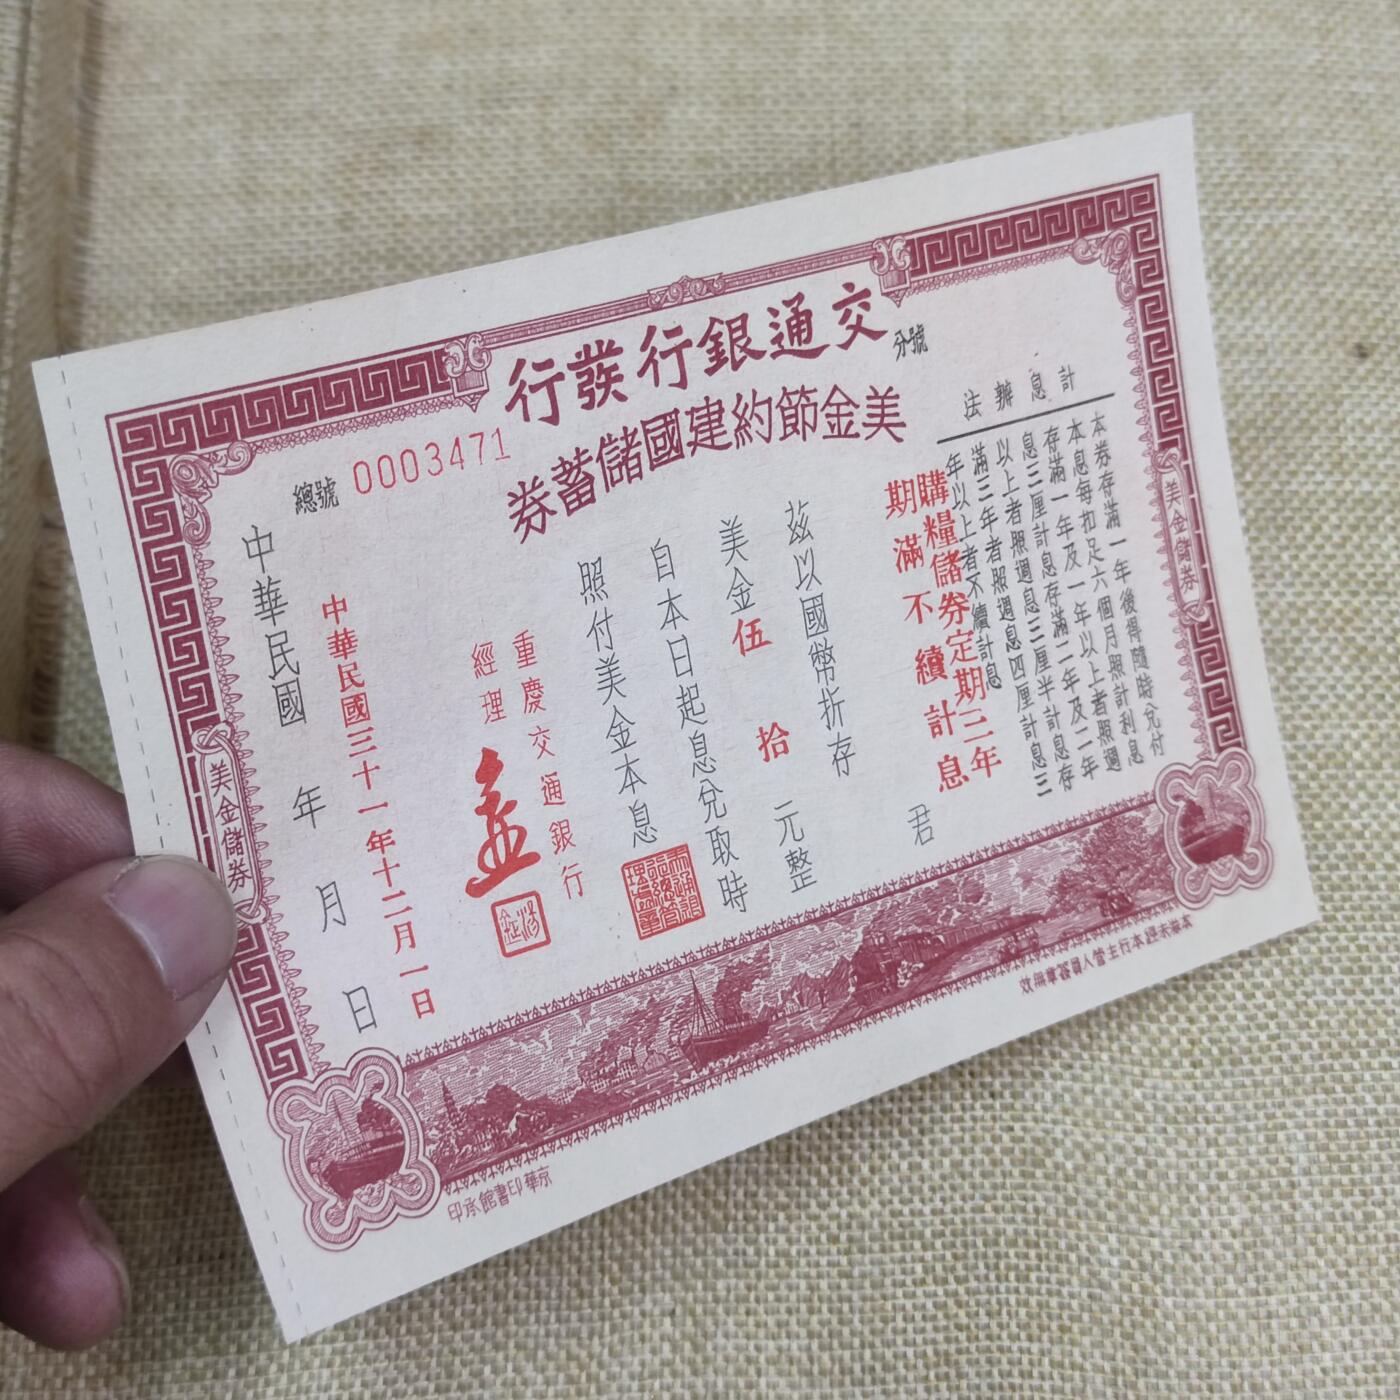 交通銀行發行
美金節約建國儲蓄券
分號
總號 0003471
計息辦法
本券存滿一年後得隨時兌付
本息每扣足六個月照計利息
存滿一年及一年以上者照週
息三厘計息存滿二年及二年
以上者照週息三厘半計息存
滿三年者照週息四厘計息三
年以上者不續計息
購糧儲券定期三年
期滿不續計息
君
茲以國幣折存
美金伍拾元整
自本日起息兌取時
照付美金本息
重慶交通銀行
經理
中華民國三十一年十二月一日
中華民國 年 月 日
美金儲券
美金儲券
本券未經本行主管人員簽章無效
京華印書館承印